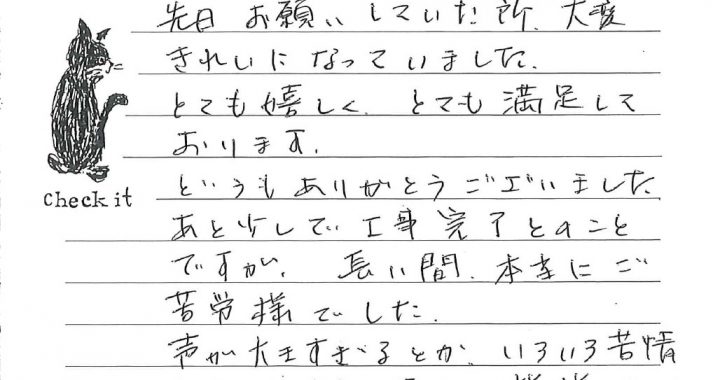 先日 お願いしていた所、大変
きれいになっていました。
とても嬉しく、とても満足して
おります。
どいうもありがとうございました。
check it
あと少しで工事完了とのこと
ですが、長い間、本当にご
苦労様でした。
声が大きすぎるとか、いろいろ苦情